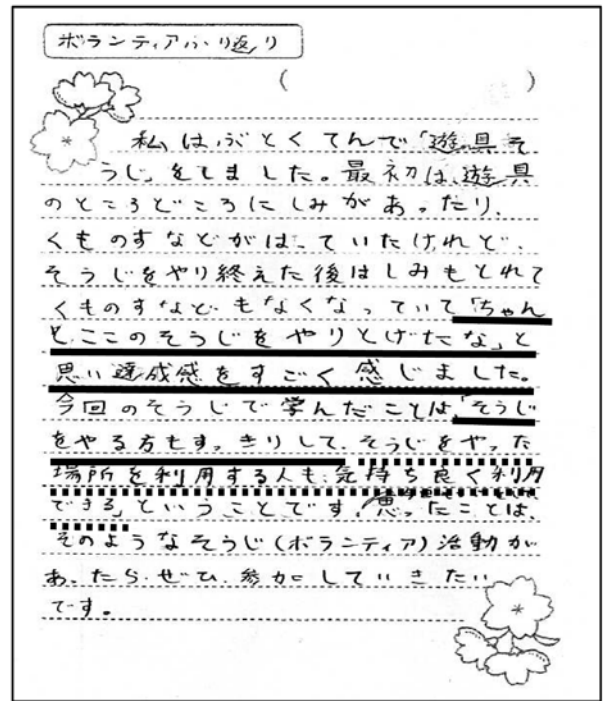 ボランティアふり返り
（　　　　　　　　　　）
私は、ぶとくてんで「遊具そ
うじ」をしました。最初は、遊具
のところどころにしみがあったり、
くものすなどがはっていたけれど、
そうじをやり終えた後はしみもとれて
くものすなどもなくなっていて「ちゃん
とここのそうじをやりとげたな」と
思い達成感をすごく感じました。
今回のそうじで学んだことは、「そうじ
をやる方もすっきりして、そうじをやった
場所を利用する人も、気持ち良く利用
できる」ということです。思ったことは、
そのようなそうじ(ボランティア)活動が
あったら、ぜひ、参加していきたい
です。